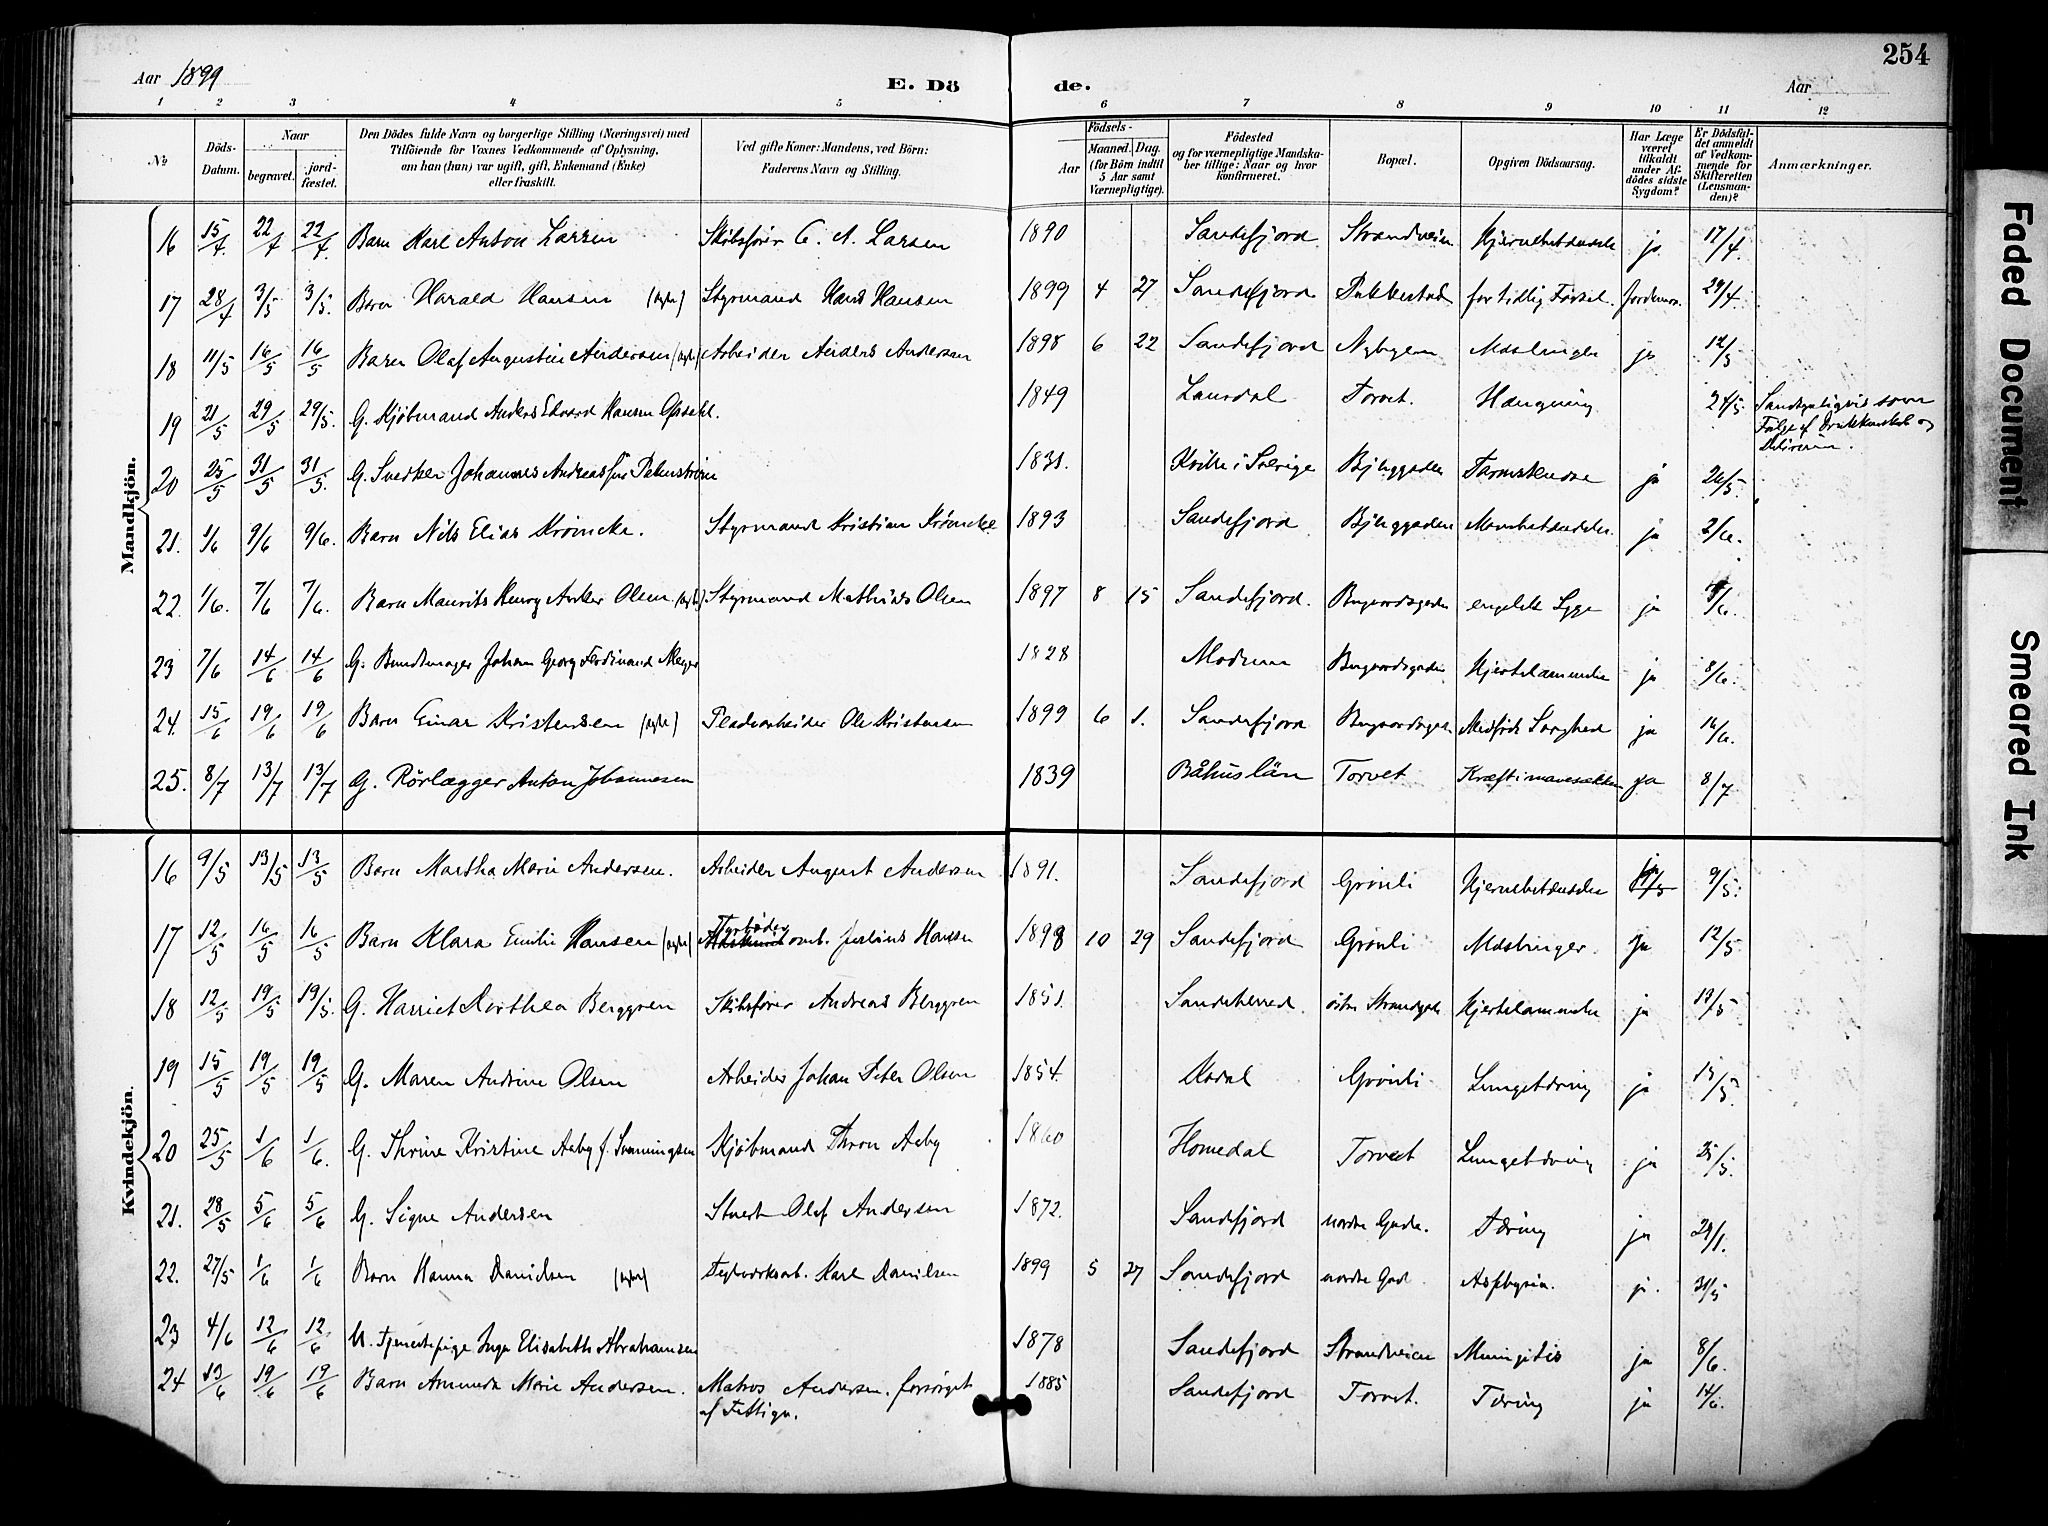 254
Aar 1899
E. Dö
de.
Aar
1 2 3 4 5 6 7 8 9 10 11 12
№
Döds-Datum.
Naar
begravet.
jord-fæstet.
Den Dödes fulde Navn og borgerlige Stilling (Næringsvei) med
Tilföiende for Voxnes Vedkommende af Oplysning,
om han (hun) var ugift, gift, Enkemand (Enke)
eller fraskilt.
Ved gifte Koner: Mandens, ved Börn:
Faderens Navn og Stilling.
Födsels-
Aar
Maaned. Dag.
(for Börn indtil
5 Aar samt
Værnepligtige).
Födested
og for værnepligtige Mandska-
ber tillige: Naar og hvor
konfirmeret.
Bopæl.
Opgiven Dödsaarsag.
Har Læge
været
tilkaldt
under Af-
dödes sidste
Sygdom?
Er Dödsfal-
det anmeldt
af Vedkom-
mende for
Skifteretten
(Lensman-
den)?
Anmærkninger.
Mandkjön.
16 15/4 22/4 22/4 Barn Karl Anton Larsen Skibsfører C. A. Larsen 1890 Sandefjord Strandveien Hjernebetændelse ja 17/4
17 28/4 3/5 3/5 Barn Harald Hansen Styrmand Hans Hansen 1899 4 27 Sandefjord Pukkestad for tidlig Fødsel jordmor. 29/4
18 11/5 16/5 16/5 Barn Olaf Augustin Andersen Arbeider Anders Andersen 1898 6 22 Sandefjord Nybyen Mæslinger ja 12/5
19 21/5 29/5 29/5 G. Kjøbmand Anders Edvard Hansen 1849 Laurdal Torvet. Hængning 24/5 Sandsynligvis som
Følge af Drukkenskab og
Delirium.
20 25/5 31/5 31/5 G. Snedker Johannes Andreas 1831. i Sverige Bjerggaden ja 26/5
21. 1/6 9/6 9/6. Barn Nils Elias Krøncke. Styrmand Kristian Krøncke 1893 Sandefjord Bjerggaden ja 2/6.
22. 1/6. 7/6 7/6. Barn Maurits Henry Anker Olsen Styrmand Mathias Olsen 1897 8 15 Sandefjord. Bugaardsgaden engelsk Syge ja
23 7/6 14/6 14/6 G. Bundtmager Johan Georg Ferdinand Meyer 1828 Modum Bugaardsgaden Hjertelammelse ja 8/6.
24. 15/6 19/6 19/6 Barn Einar Kristensen Ole Kristensen 1899 6 1. Sandefjord Bugaardsgaden Medfødt Svaghed ja 16/6.
25. 8/7 13/7 13/7 G. Rörlægger Anton Johannesen 1839 Båhuslän Torvet Kræft i mavesækken ja 8/7
Kvindekjön.
16 9/5 13/5 13/5 Barn Martha Marie Andersen. Arbeider August Andersen 1891. Sandefjord Grønli Hjernebetændelse 9/5
17 12/5 16/5 16/5 Barn Klara Emilie Hansen Fyrbøder Julius Hansen 1898 10 29 Sandefjord Grønli Mæslinger. ja 12/5
18 12/5 19/5 19/5. G. Harriet Dorthea Berggren Skibsfører Andreas Berggren 1851. Sandeherred østre Strandgade Hjertelammelse ja 13/5
19 15/5 19/5 19/5 G. Maren Andrine Olsen Arbeider Johan Peter Olsen 1854. Grønli Lungetæring ja 15/5
20 25/5 1/6 1/6. G. Thrine Kristine Aaby f. Svenningsen Kjøbmand Thron Aaby 1860 Homedal Torvet Lungetæring ja 25/5
21. 28/5 5/6 5/6 G. Signe Andersen Stuert Olaf Andersen 1872. Sandefjord nordre Gade. Tæring ja
22. 27/5 1/6 1/6 Barn Hanna Danielsen Teglverksarb. Karl Danielsen 1899 5 27 Sandefjord nordre Gad. Asfyxia. ja. 31/5
23 4/6 12/6 12/6 U. Tjenestepige Inga Elisabeth Abrahamsen 1878 Sandefjord Strandveien Meningitis ja 8/6.
24 13/6 19/6 19/6 Barn Marie Andersen. Matros Andersen. forsørget
af Fattigv. 1885 Sandefjord Torvet. Tæring ja 14/6.
Faded Document
Smeared Ink